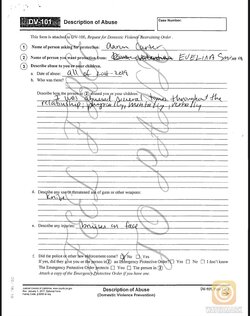 DV-101 Description of Abuse
Case Number:
This form is attached to DV-100, Request for Domestic Violence Restraining Order.
1 Name of person asking for protection: Aaron Carter
2 Name of person you want protection from: EVELINA
3 Describe abuse to you or your children.
a. Date of abuse: all of 2018-2019
b. Who was there?
c. Describe how the person in 2 abused you or your children:
I was abused several times throughout the
relationship physically, mentally, verbally
d. Describe any use or threatened use of guns or other weapons:
Knife
e. Describe any injuries: bruises on face
f. Did the police or other law enforcement come? No Yes
If yes, did they give you or the person in 2 an Emergency Protective Order? Yes No I don't know
The Emergency Protective Order protects You The person in 2
Attach a copy of the Emergency Protective Order if you have one.
Description of Abuse
(Domestic Violence Prevention)
DV-101
WATERMARK